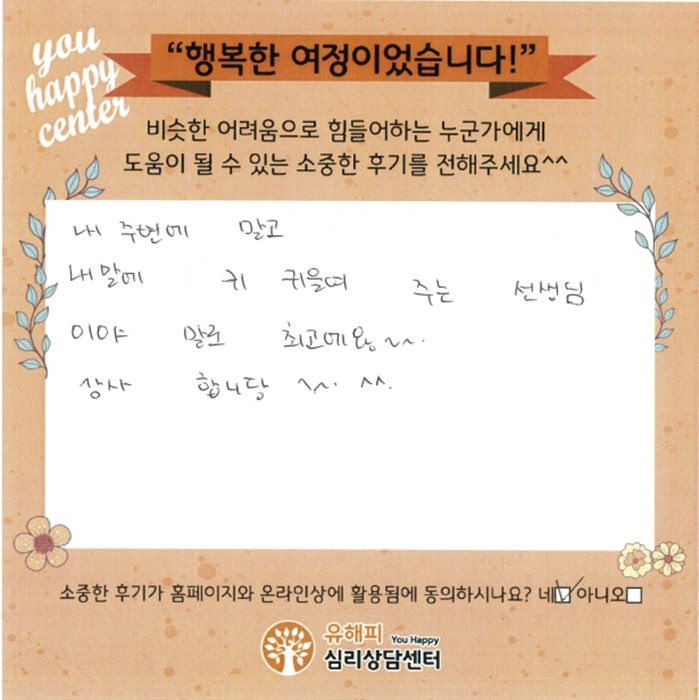 you
happy
center
“행복한 여정이었습니다!”
비슷한 어려움으로 힘들어하는 누군가에게
도움이 될 수 있는 소중한 후기를 전해주세요^^
내 주변에 말고
내 말에 귀 귀울여 주는 선생님
이야 말로 최고에요 ~~.
상사 합니당 ~~. ^^.
소중한 후기가 홈페이지와 온라인상에 활용됨에 동의하시나요? 네☑ 아니오□
유해피 You Happy
심리상담센터